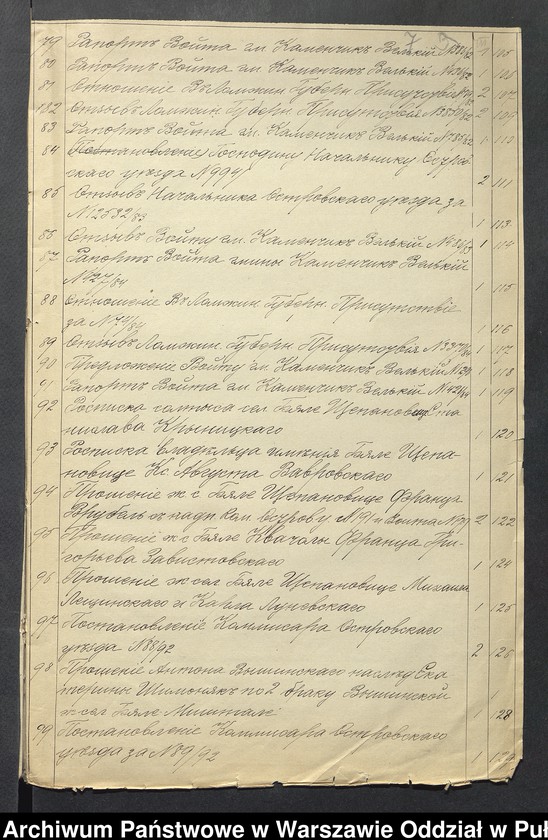 79 Рапортъ Войта гм. Каменчикъ Велькій 1 105
80 Рапортъ Войта гм. Каменчикъ Велькій 1 106
81 Отношеніе Въ Ломжин. Губерн. Присутствія 2 107
82 Отзывъ Ломжин. Губерн. Присутствія 2 109
83 Рапортъ Войта гм. Каменчикъ Велькій 1
84 Постановленіе Господину Начальнику Остров-
скаго уѣзда № 994 2 111
85 Отзывъ Начальника Островскаго уѣзда за
№ 12532/83 1 113
86 Отзывъ Войту гм. Каменчикъ Велькій 1 114
87 Рапортъ Войта гмины Каменчикъ Велькій
№ 27/84 1 115
88 Отношеніе Въ Ломжин. Губерн. Присутствіе
за № 1 116
89 Отзывъ Ломжин. Губерн. Присутствія 1 117
90 Предложеніе Войту гм. Каменчикъ Велькій 1 118
91 Рапортъ Войта гм. Каменчикъ Велькій 1 119
92 Росписка солтыса сел. Бяле Щепановице Ста
нислава Крыницкаго 1 120
93 Росписка владѣльца имѣнія Бяле Щепа-
новице Кс. Августа Вавровскаго 1 121
94 Прошеніе ж. с. Бяле Щепановице Франца
Врубель 2 122
95 Прошеніе ж. с. Бяле Квачолы Франца Гри-
горьева Завистовскаго 1 124
96 Прошеніе ж. сел. Бяле Щепановице Михаила
Лещинскаго и Карла Луневскаго 1 125
97 Постановленіе Коммисара Островскаго
уѣзда № 88/92 2 126
98 Прошеніе Антона Вышинскаго наслѣд. Ека
терины Шимонякъ по 2 браку Вышинской
ж. сел. Бяле 1 128
99 Постановленіе Коммисара Островскаго
уѣзда за № 89/92 1 129
Archiwum Państwowe w Warszawie Oddział w Puł